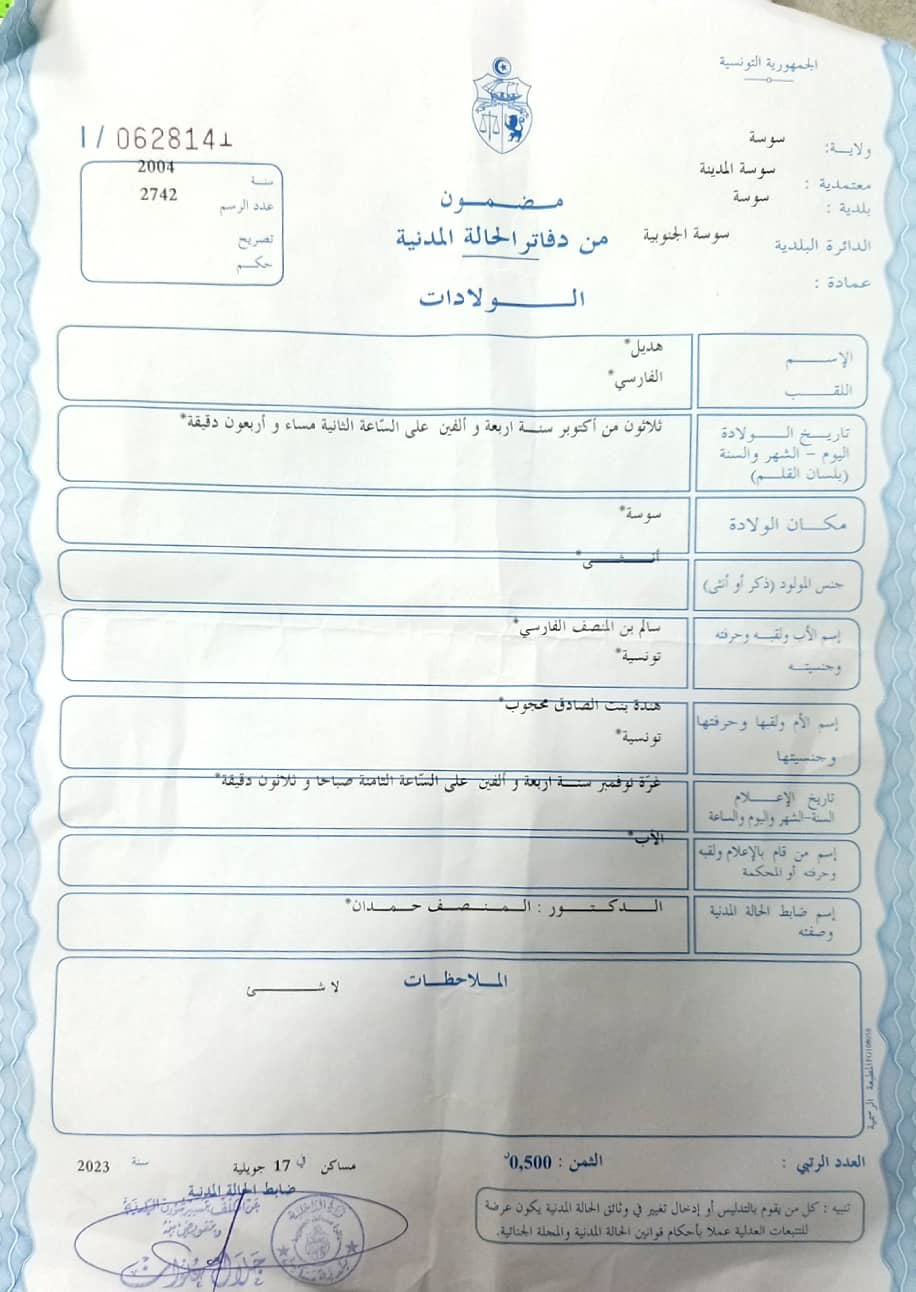 الجمهورية التونسية
ولاية: سوسة
معتمدية : سوسة المدينة
بلدية : سوسة
الدائرة البلدية سوسة الجنوبية
عمادة :
I / 062814
سنة 2004
عدد الرسم 2742
تصريح
حكم
مضمون
من دفاتر الحالة المدنية
الولادات
الإسم هديل*
اللقب الفارسي*
تاريخ الولادة
اليوم - الشهر والسنة
(بلسان القلم)
ثلاثون من أكتوبر سنة اربعة و ألفين على السّاعة الثانية مساء و أربعون دقيقة*
مكان الولادة سوسة*
جنس المولود (ذكر أو أنثى) أنثى*
إسم الأب ولقبه وحرفته
وجنسيته
سالم بن المنصف الفارسي*
تونسية*
إسم الأم ولقبها وحرفتها
وجنسيتها
هندة بنت الصادق محجوب*
تونسية*
تاريخ الإعلام
السنة-الشهر واليوم والساعة
غرّة نوفمبر سنة اربعة و ألفين على السّاعة الثامنة صباحا و ثلاثون دقيقة*
إسم من قام بالإعلام ولقبه
وحرفته أو المحكمة
الأب*
إسم ضابط الحالة المدنية
وصفته
الدكتور : المنصف حمدان*
الملاحظات
لا شئ
المطبعة الرسمية
العدد الرتبي :
الثمن : 0,500د
مساكن في 17 جويلية سنة 2023
ضابط الحالة المدنية
تنبيه : كل من يقوم بالتدليس أو إدخال تغيير في وثائق الحالة المدنية يكون عرضة
للتتبعات العدلية عملا بأحكام قوانين الحالة المدنية والمجلة الجنائية.